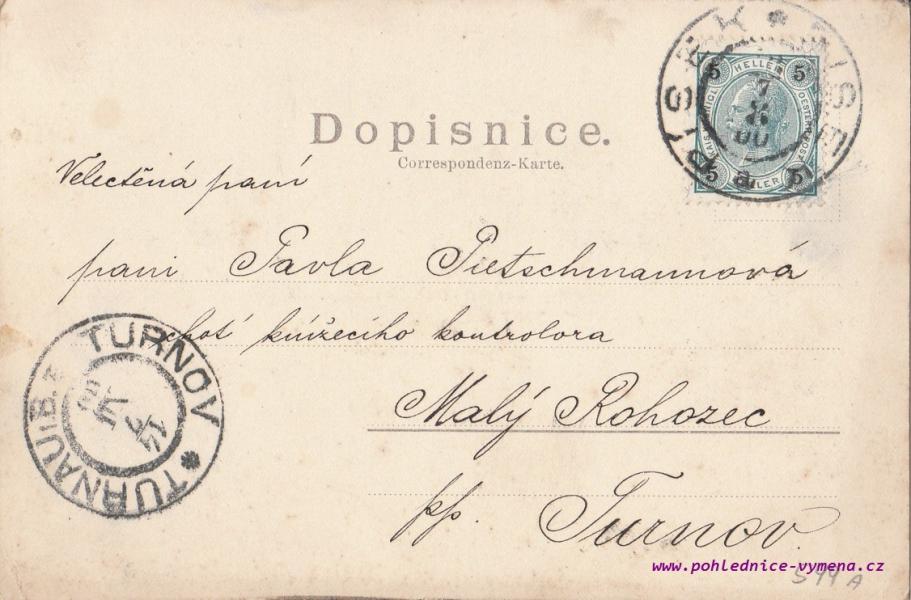 Dopisnice.
Correspondenz-Karte.
PISEK * PISEK
5 HELLER 5
5 HELLER 5
Velectěná paní
paní Pavla Pietschmannová
chotí knížecího kontrolora
TURNOV * TURNAU i/B.
Malý Rohozec
pp. Turnov.
www.pohlednice-vymena.cz